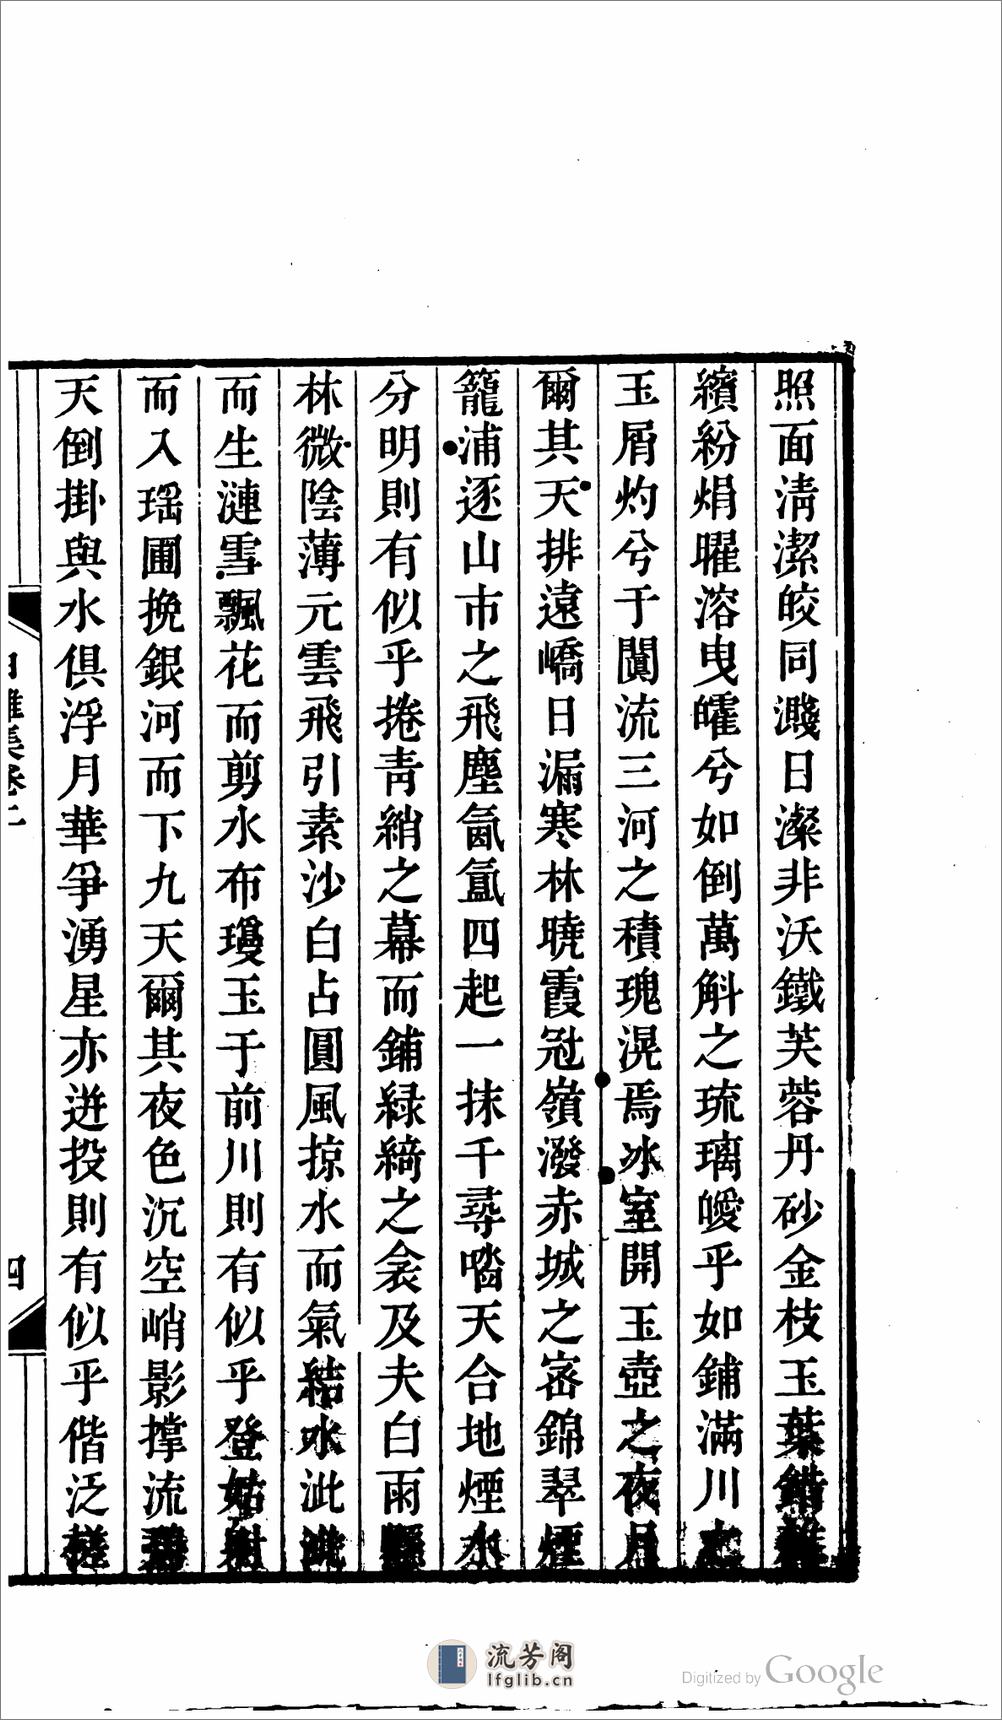 照面淸潔皎同濺日澯非沃鐵芙蓉丹砂金枝玉葉錯雜
繽紛焆曜溶曳皬兮如倒萬斛之琉璃皧乎如鋪滿川之
玉屑灼兮于闐流三河之積瑰滉焉冰室開玉壺之夜月
爾其天排遠嶠日漏寒林曉霞冠嶺潑赤城之宻錦翠煙
籠浦逐山市之飛塵氤氳四起一抹千尋喢天合地煙水
分明則有似乎捲靑綃之幕而鋪緑綺之衾及夫白雨
林微陰薄元雲飛引素沙白占圓風掠水而氣結水泚
而生漣雪飄花而剪水布瓊玉于前川則有似乎登姑射
而入瑶圃挽銀河而下九天爾其夜色沉空峭影撑流
天倒掛與水俱浮月華爭湧星亦迸投則有似乎偕泛槎
雅集卷二
四
流芳阁
lfglib.cn
Digitized by Google